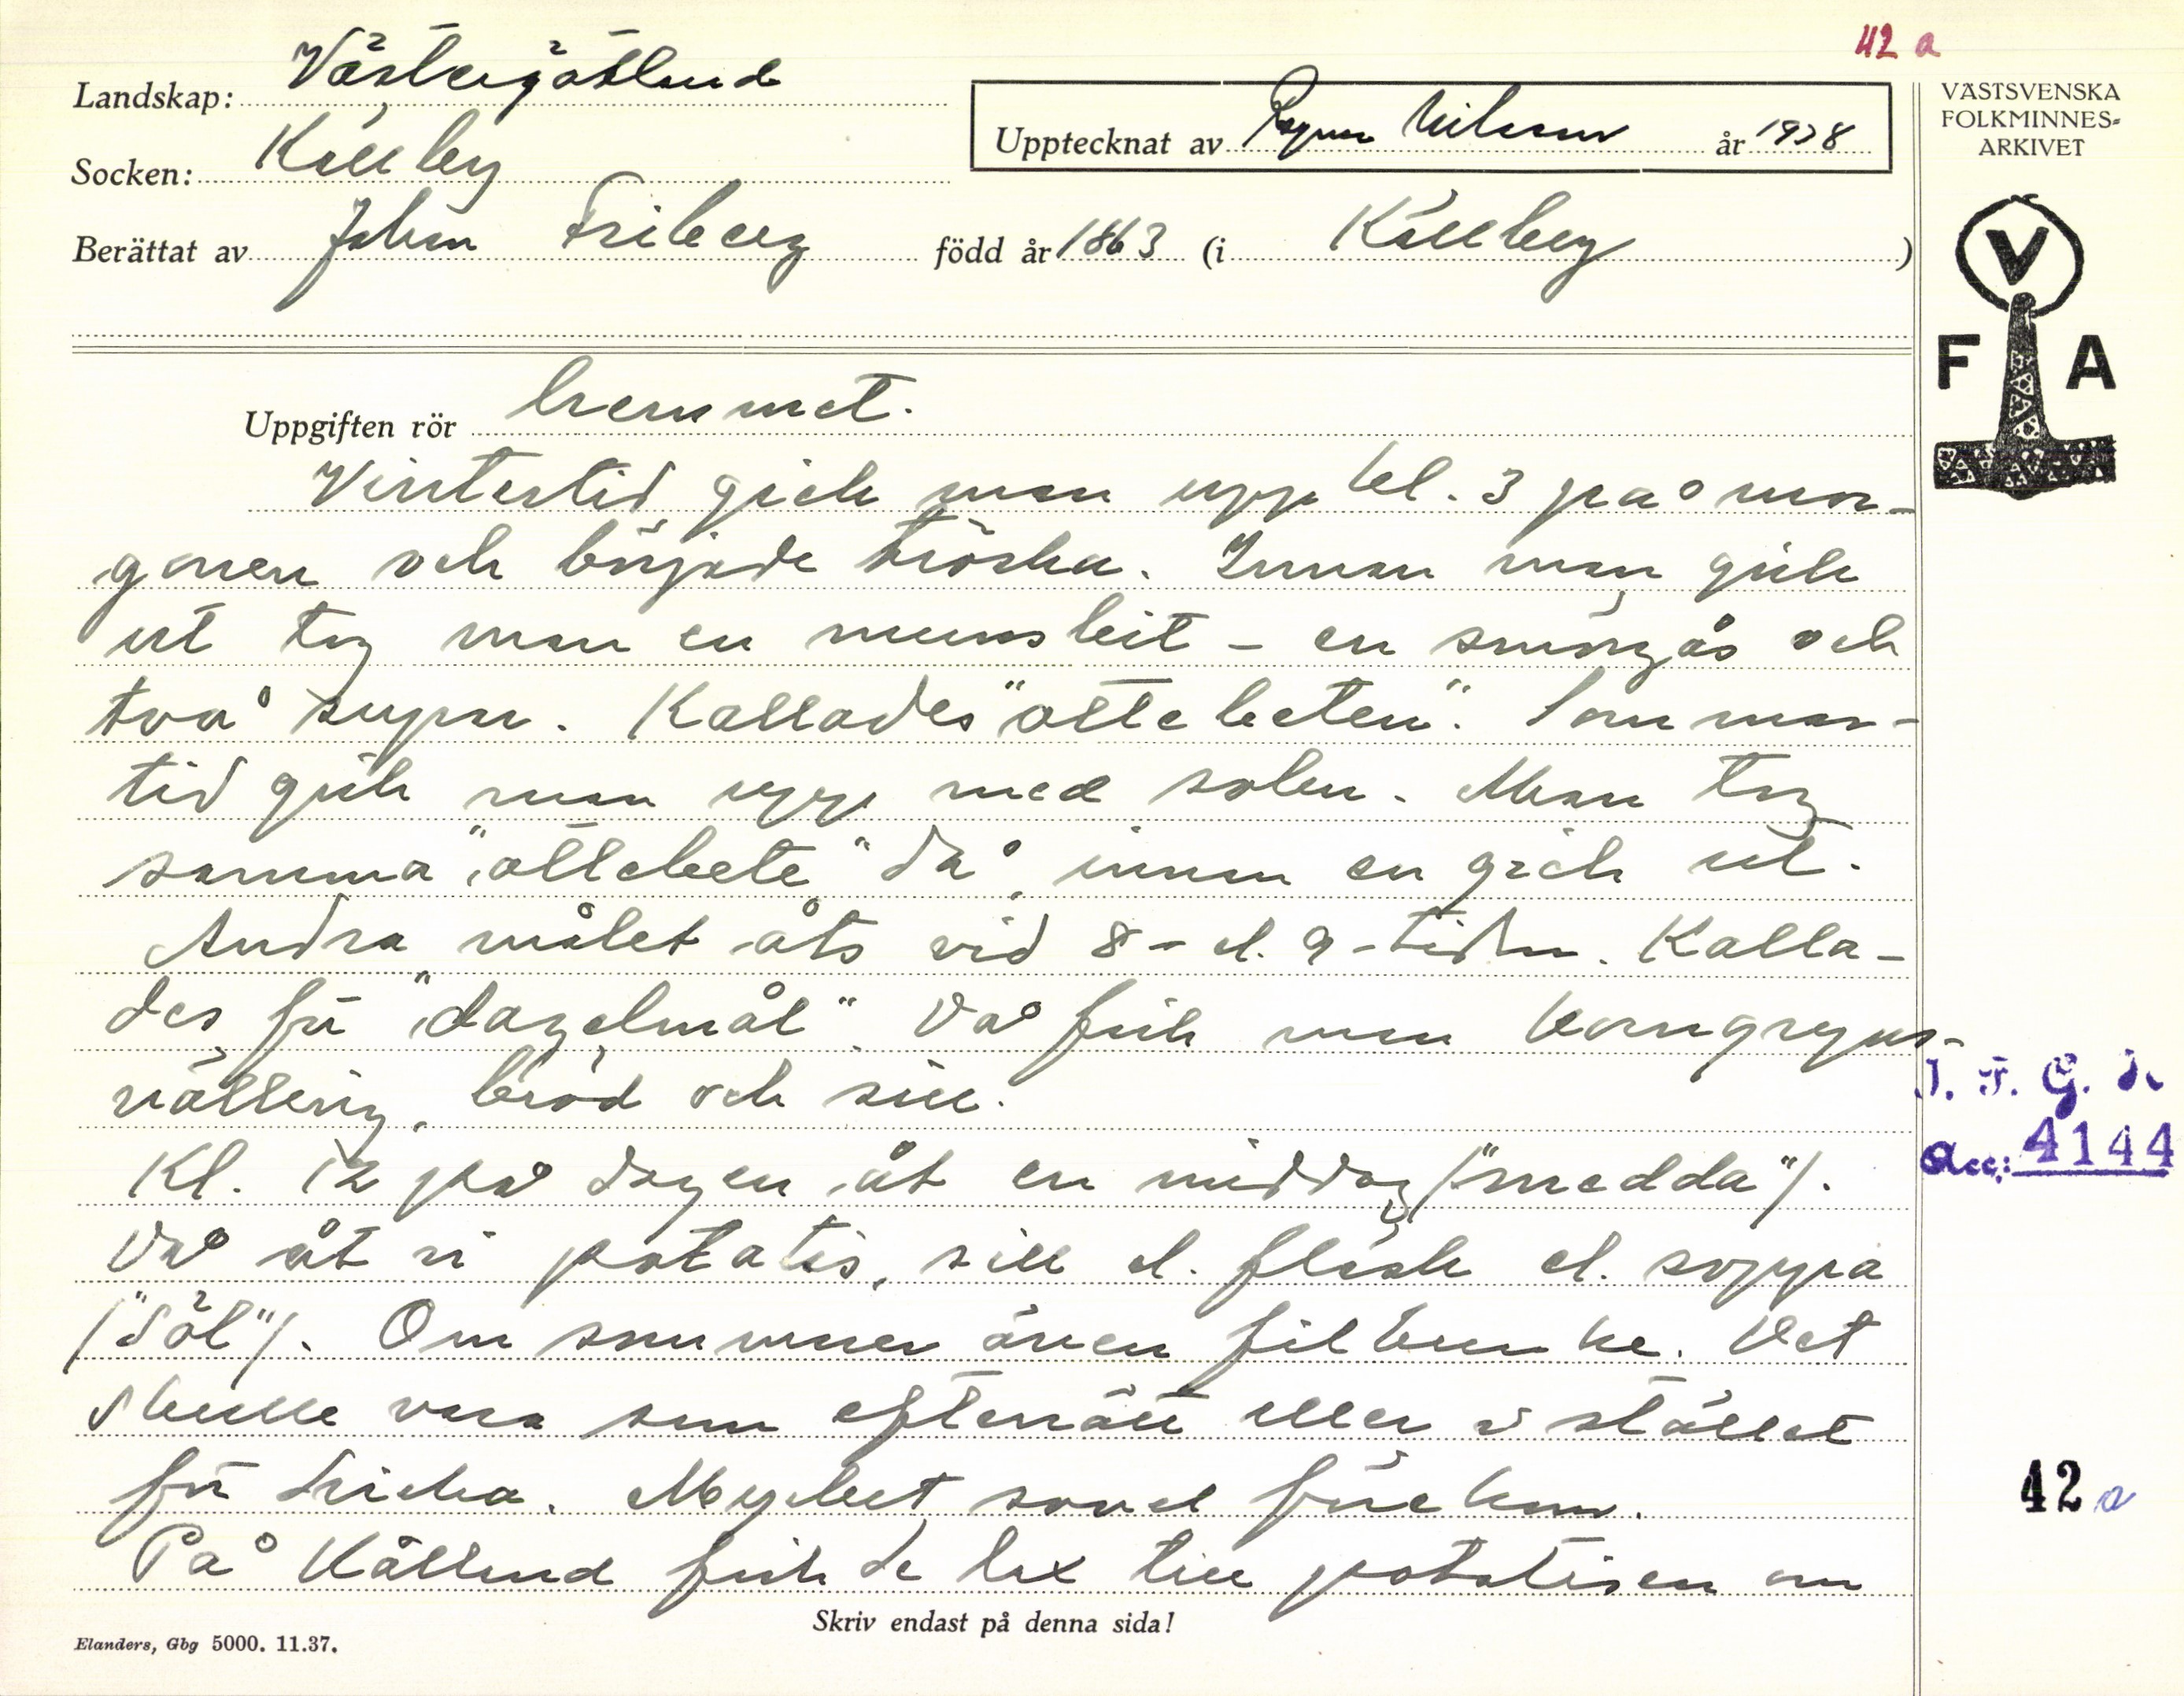 42 a
Landskap: Västergötland
Socken: Källby
Upptecknat av Ragnar Nilsson år 1938
Berättat av Johan Friberg född år 1863 (i Källby)
VÄSTSVENSKA
FOLKMINNES-
ARKIVET
V
F A
Uppgiften rör hemmet.
Vintertid gick man upp kl. 3 på mor-
gonen och började tröska. Innan man gick
ut tog man en munsbit - en smörgås och
två supar. Kallades "ottebeten". Sommar-
tid gick man upp med solen. Man tog
samma "ottebete" då, innan en gick ut.
Andra målet åts vid 8- el. 9-tiden. Kalla-
des för "dagelmål". Då fick man korngryns-
välling, bröd och sill.
Kl. 12 på dagen åt en middag /"medda"/.
Då åt vi potatis, sill el. fläsk el. soppa
/"söl"/. Om sommaren även filbunke. Det
skulle vara som efterrätt eller i stället
för dricka. Mycket sovel förekom.
På Kålland fick de lax till potatisen om
I. F. G. H.
Acc: 4144
42 a
Skriv endast på denna sida!
Elanders, Gbg 5000. 11.37.